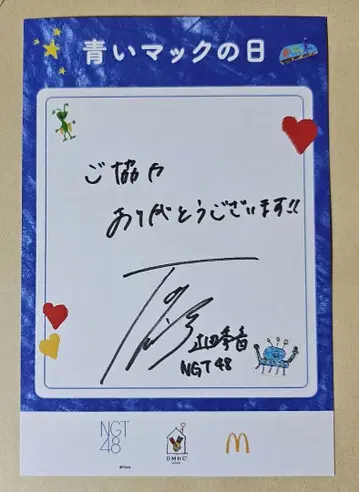 青いマックの日
ご協力
ありがとうございます!!
NGT48
NGT
48
DMHC